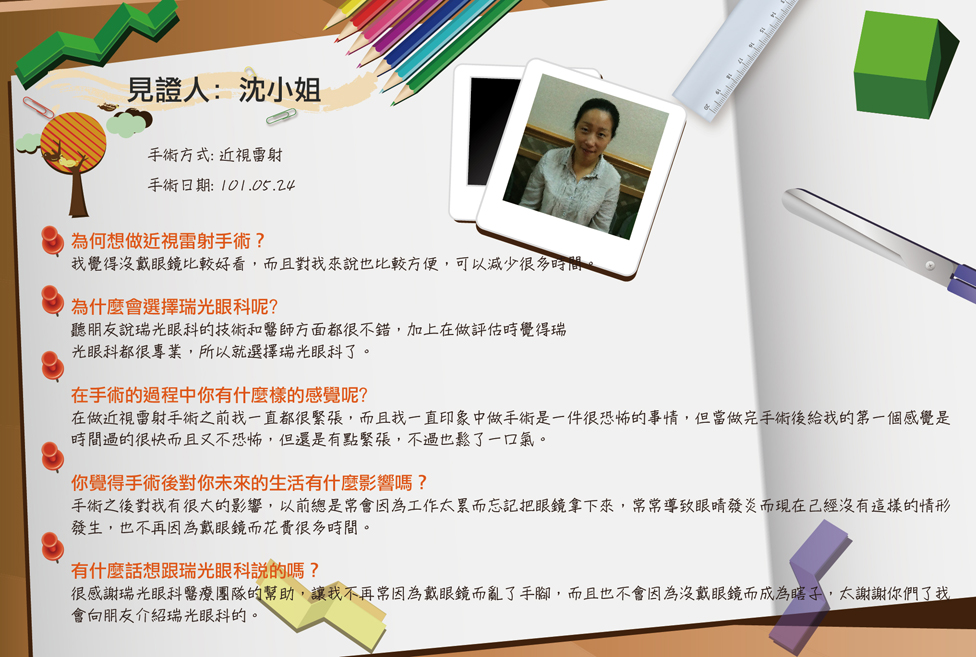 見證人：沈小姐
手術方式: 近視雷射
手術日期: 101.05.24
為何想做近視雷射手術？
我覺得沒戴眼鏡比較好看，而且對我來說也比較方便，可以減少很多時間。
為什麼會選擇瑞光眼科呢?
聽朋友說瑞光眼科的技術和醫師方面都很不錯，加上在做評估時覺得瑞
光眼科都很專業，所以就選擇瑞光眼科了。
在手術的過程中你有什麼樣的感覺呢?
在做近視雷射手術之前我一直都很緊張，而且我一直印象中做手術是一件很恐怖的事情，但當做完手術後給我的第一個感覺是
時間過的很快而且又不恐怖，但還是有點緊張，不過也鬆了一口氣。
你覺得手術後對你未來的生活有什麼影響嗎？
手術之後對我有很大的影響，以前總是常會因為工作太累而忘記把眼鏡拿下來，常常導致眼睛發炎而現在己經沒有這樣的情形
發生，也不再因為戴眼鏡而花費很多時間。
有什麼話想跟瑞光眼科說的嗎？
很感謝瑞光眼科醫療團隊的幫助，讓我不再常因為戴眼鏡而亂了手腳，而且也不會因為沒戴眼鏡而成為瞎子，太謝謝你們了我
會向朋友介紹瑞光眼科的。